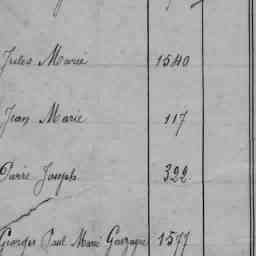 Jules Marie 1540
Jean Marie 117
Pierre Joseph 322
Georges Paul Marie 1577